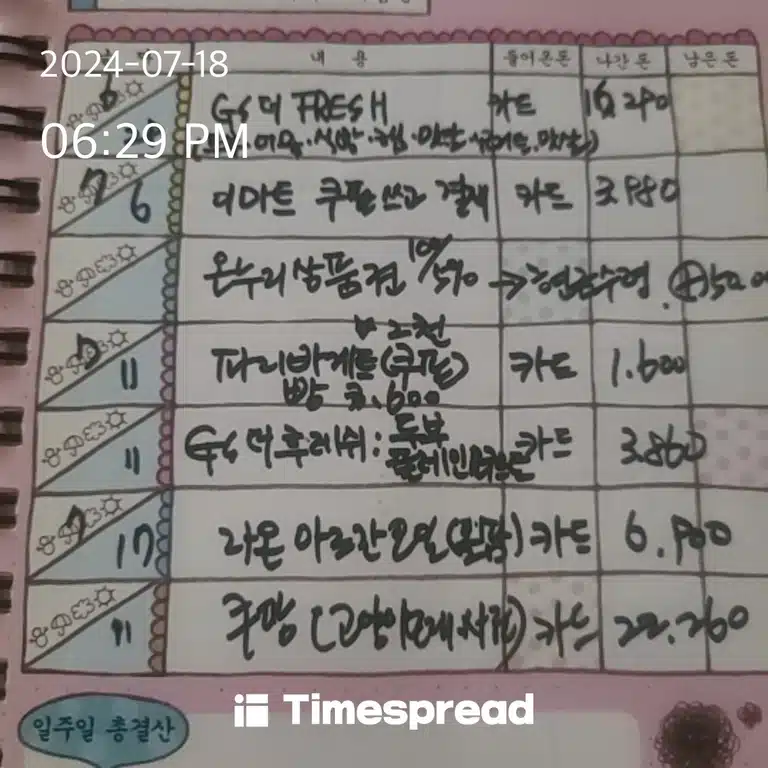 2024-07-18
06:29 PM
내 용 들어온돈 나간돈 남은돈
GS더 FRESH 카드 16,290
7 6 이마트 쿠폰쓰고 결제 카드 3.980
온누리상품권 10% 5% → 현금수령
2천
11 파리바게트(쿠폰) 카드 1.600
빵 3.600
11 GS더후레쉬: 두부 카드 3.860
7 17 라온 아르간오일 카드 6.900
쿠팡 (고양이모래 카드 22.260
일주일 총결산
Timespread